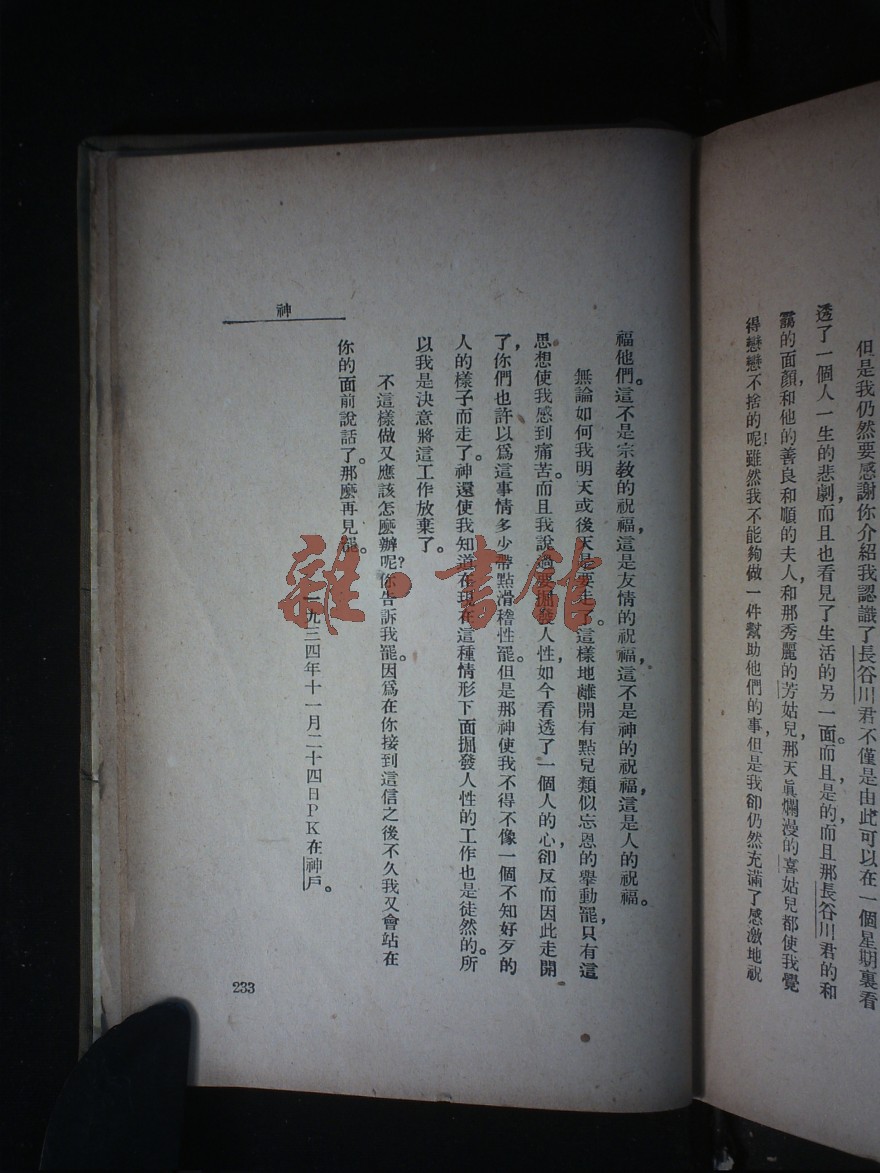 但是我仍然要感謝你介紹我認識了長谷川君不僅是由此可以在一個星期裏看
透了一個人一生的悲劇，而且也看見了生活的另一面。而且是的，而且那長谷川君的和
靄的面顏，和他的善良和順的夫人，和那秀麗的芳姑兒，那天眞爛漫的喜姑兒都使我覺
得戀戀不捨的呢！雖然我不能夠做一件幫助他們的事，但是我卻仍然充滿了感激地祝
福他們。這不是宗教的祝福，這是友情的祝福，這不是神的祝福，這是人的祝福。
無論如何我明天或後天是要走了。這樣地離開有點兒類似忘恩的舉動罷，只有這
思想使我感到痛苦。而且我說過要掘發人性，如今看透了一個人的心，卻反而因此走開
了，你們也許以爲這事情多少帶點滑稽性罷。但是那神使我不得不像一個不知好歹的
人的樣子而走了。神還使我知道在現在這種情形下面掘發人性的工作也是徒然的。所
以我是決意將這工作放棄了。
不這樣做又應該怎麼辦呢？你告訴我罷。因爲在你接到這信之後不久我又會站在
你的面前說話了。那麼再見罷。
一九三四年十一月二十四日PK在神戶。
神
233
雜·書館